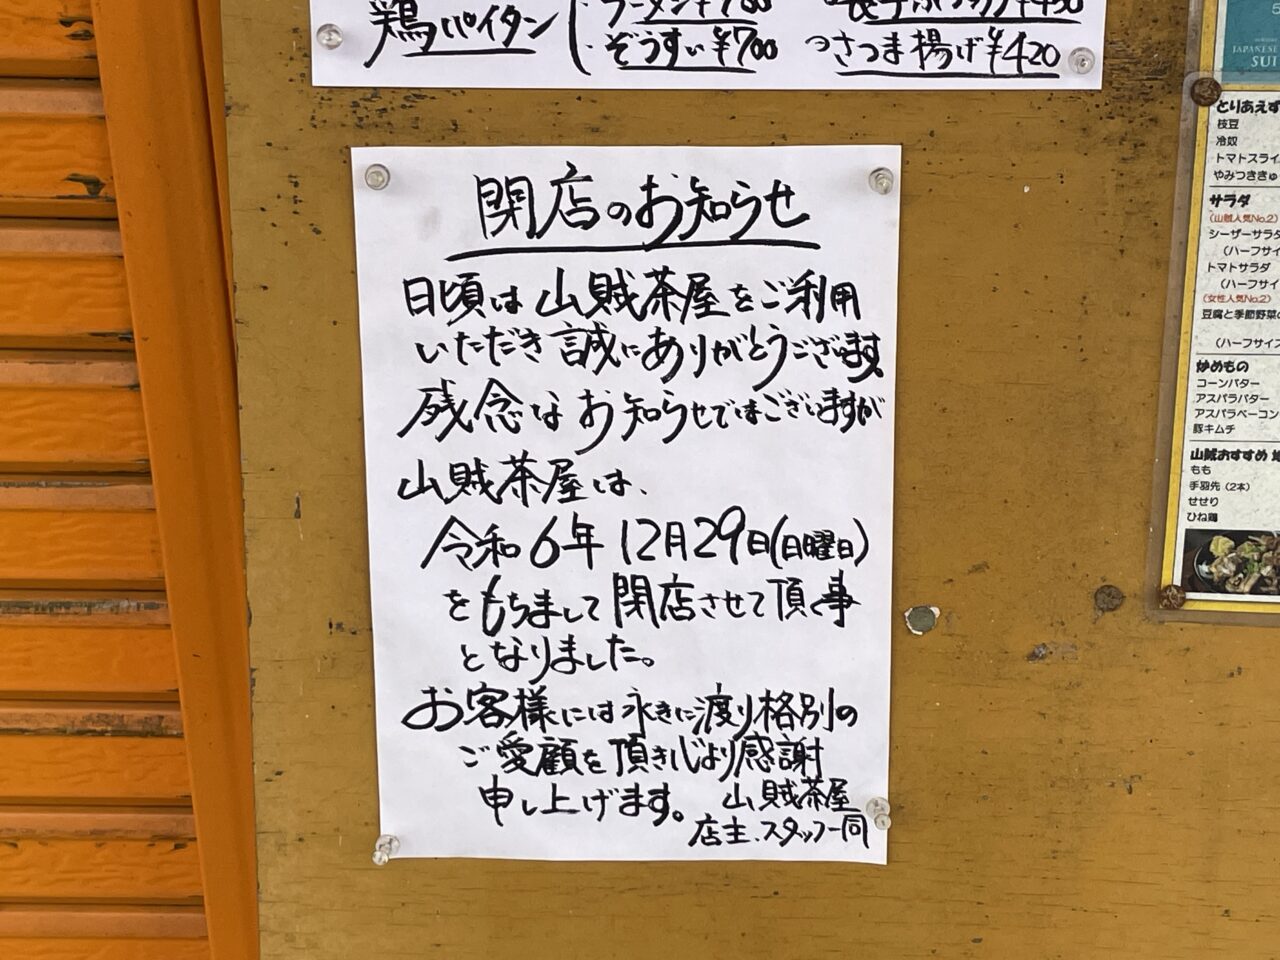 鶏パイタン
ラーメン¥700
ぞうすい¥700
さつま揚げ¥420
閉店のお知らせ
日頃は山賊茶屋をご利用
いただき誠にありがとうございます
残念なお知らせではございますが
山賊茶屋は、
令和6年12月29日(日曜日)
をもちまして閉店させて頂く事
となりました。
お客様には永きに渡り格別の
ご愛顧を頂き心より感謝
申し上げます。
山賊茶屋
店主、スタッフ一同
JAPANESE
SUI
とりあえず
枝豆
冷奴
トマトスライ
やみつききゅ
サラダ
(山賊人気No.2)
シーザーサラダ
(ハーフサイ
トマトサラダ
(ハーフサイ
(女性人気No.2)
豆腐と季節野菜の
(ハーフサイズ
炒めもの
コーンバター
アスパラバター
アスパラベーコン
豚キムチ
山賊おすすめ 地
もも
手羽先(2本)
せせり
ひね鶏